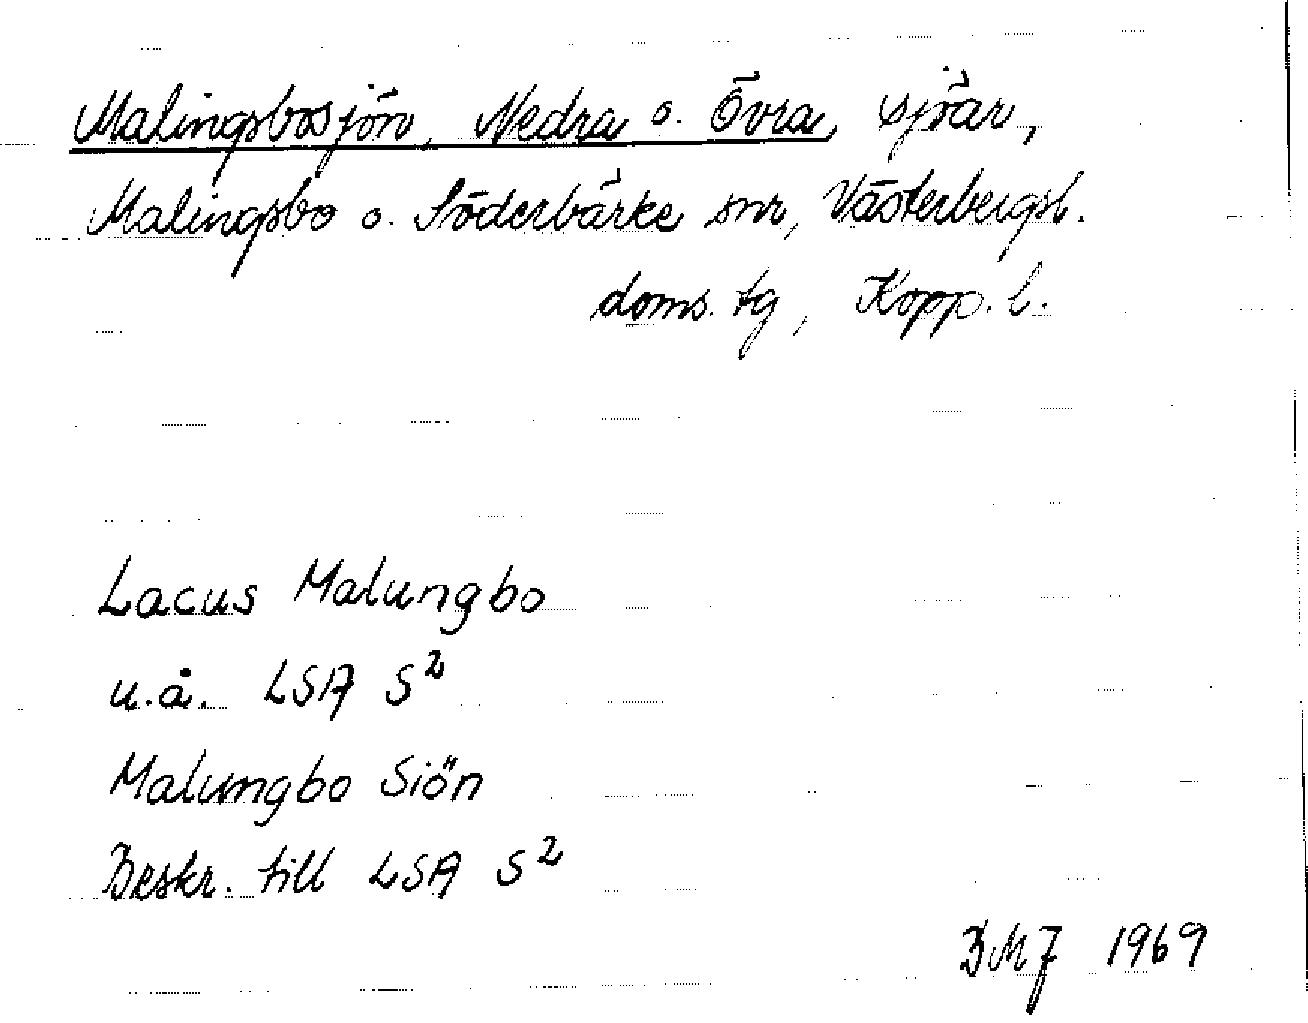 Malingsbosjön, Nedra o. Övra, sjöar,
Malingsbo o. Söderbärke snr, Västerbergsl.
doms. tg, Kopp. l.
Lacus Malungbo
u.å. LSA S²
Malungbo Siön
Beskr. till LSA S²
BMJ 1969